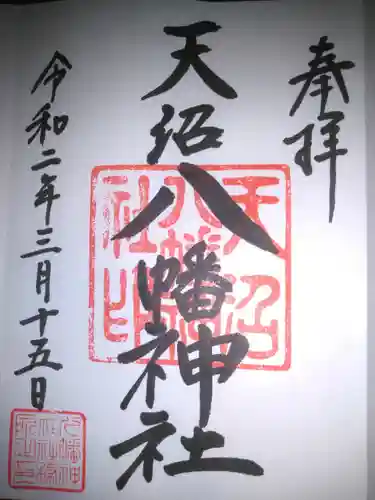 奉拝
天沼八幡神社
令和二年三月十五日
天沼八幡神社印